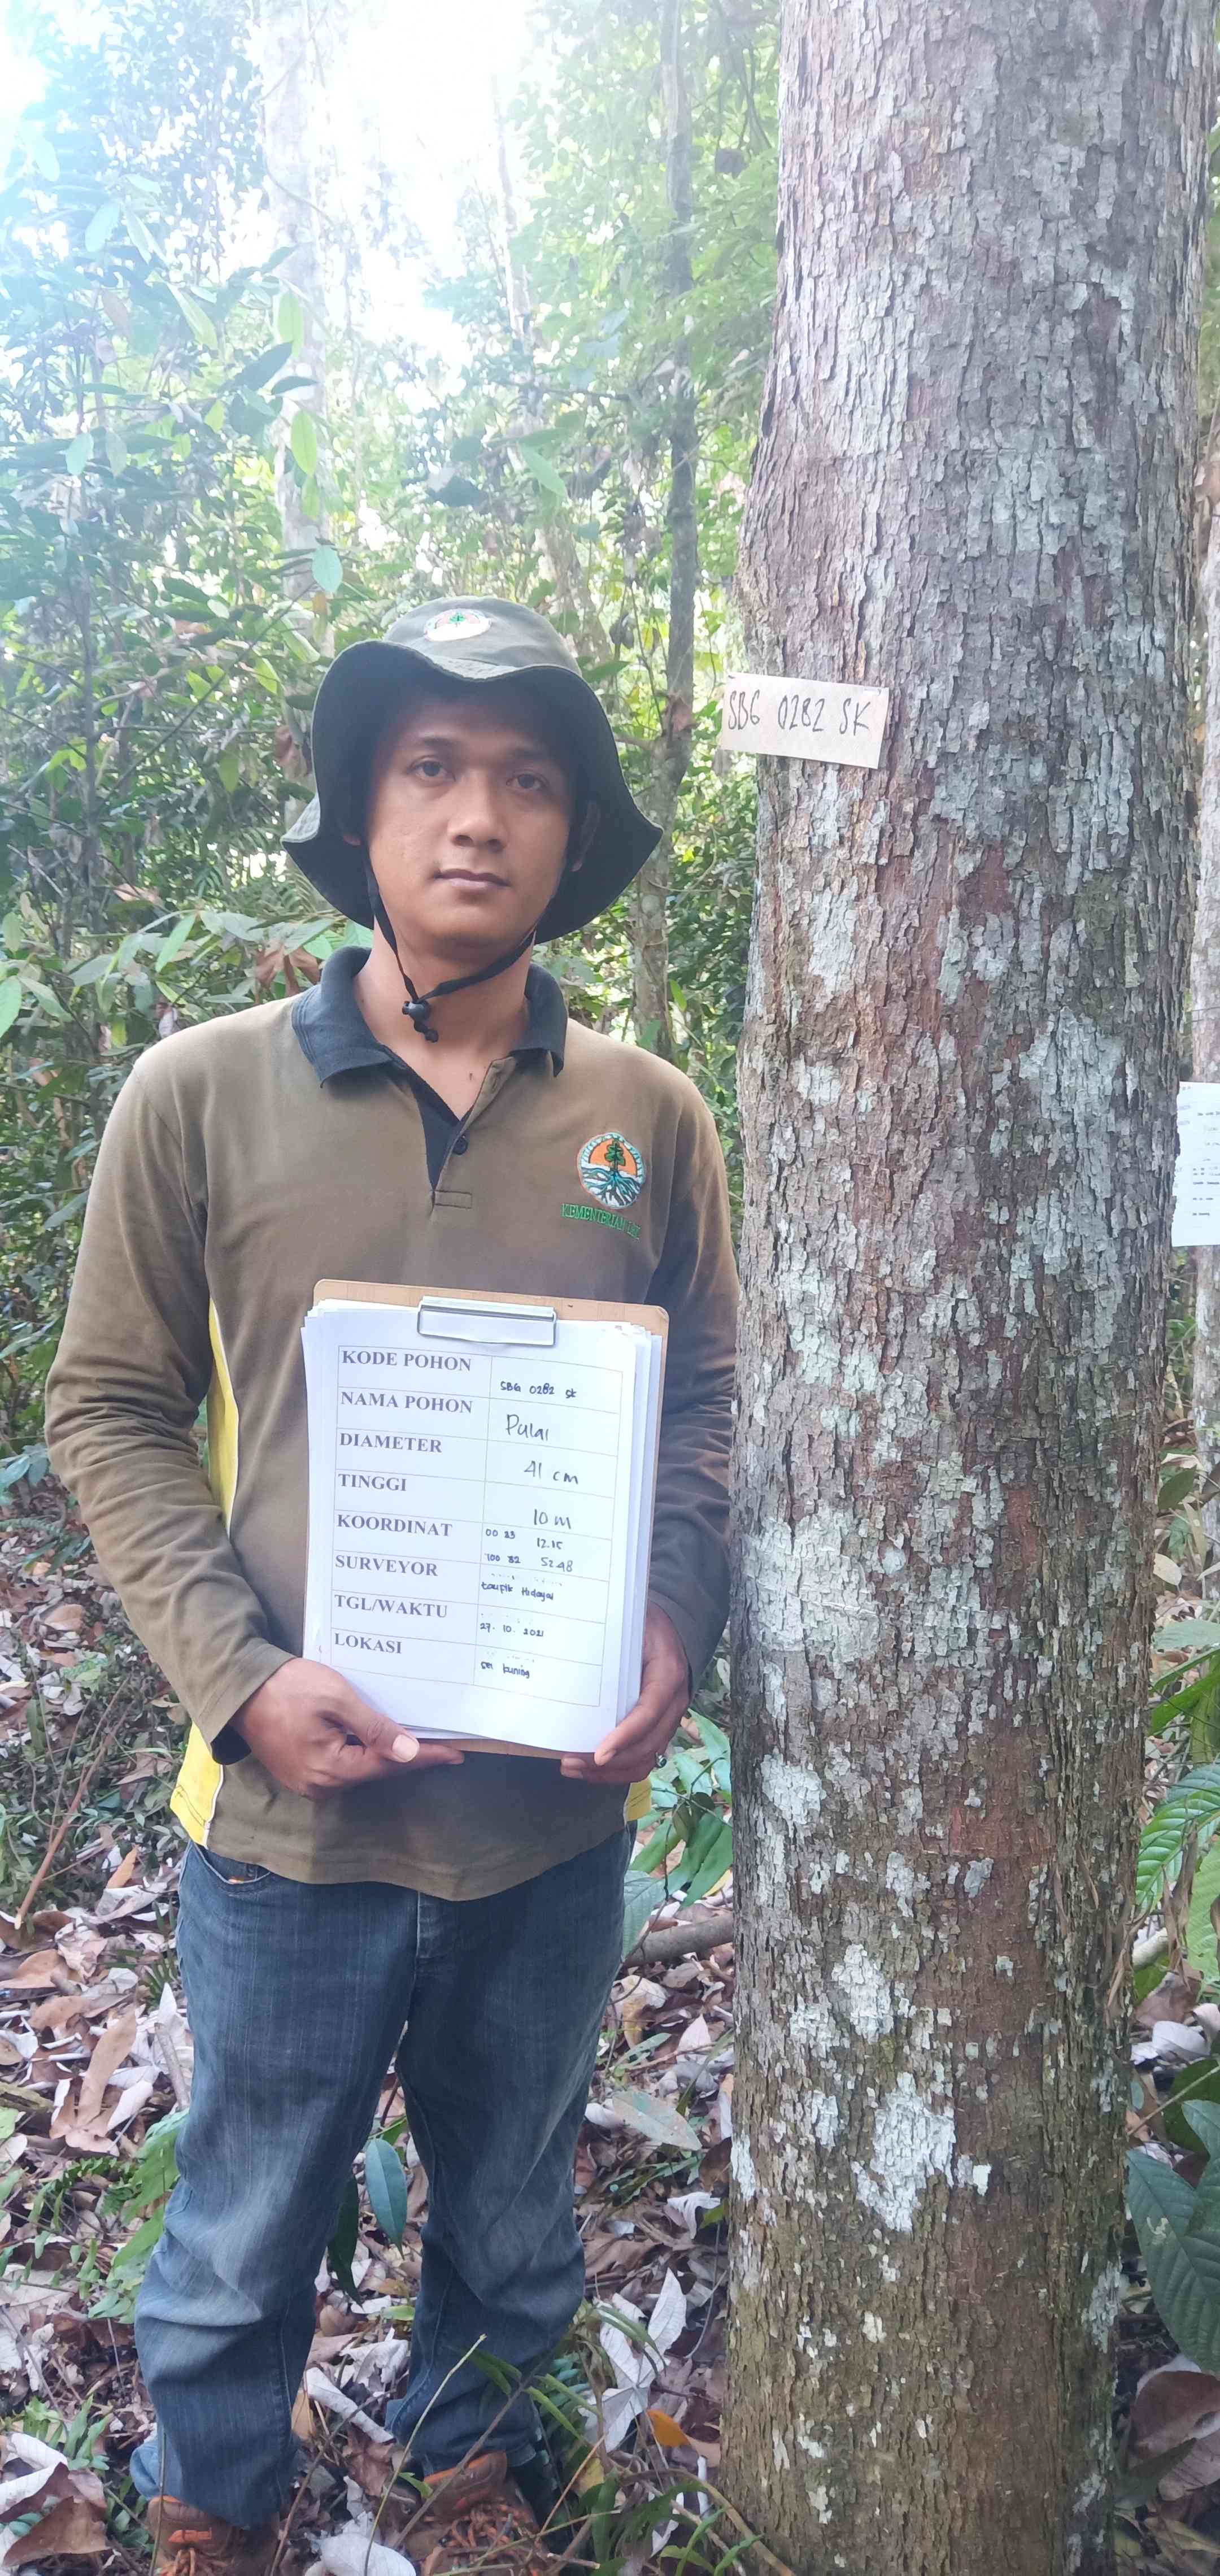 SBG 0282 SK
KEMENTERIAN LHK
KODE POHON SBG 0282 SK
NAMA POHON Pulai
DIAMETER 41 cm
TINGGI 10 m
KOORDINAT 00 23 12.15
100 32 52.48
SURVEYOR taufik Hidayat
TGL/WAKTU 27. 10. 2021
LOKASI sei kuning